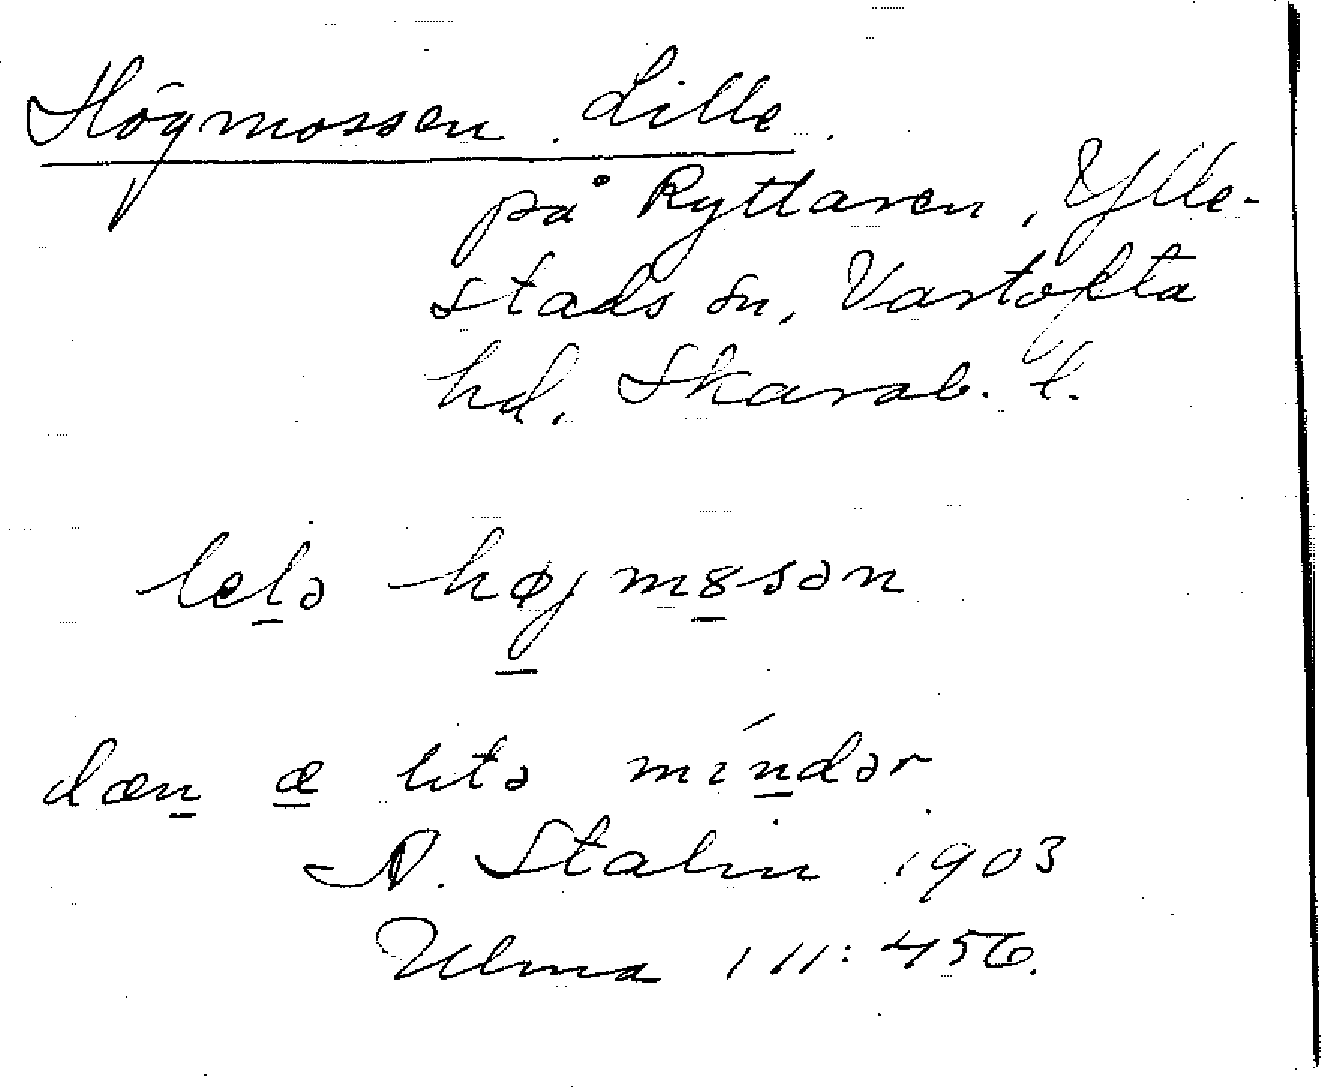 Högmossen, Lille.
på Ryttaren, Ylle-
stads sn, Vartofta
hd. Skarab. l.
lelə højmɞsən
dæn æ litə míndər
A. Stalin 1903
Ulma 111:456.